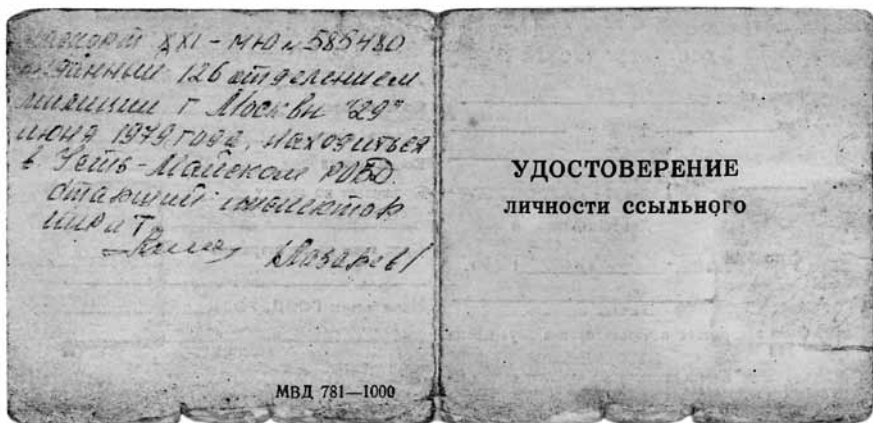 паспорт XXI-МЮ № 585480
выданный 126 отделением
милиции г Москвы "29"
июня 1979 года, находиться
в Усть-Майском РОВД.
старший инспектор
ИИР и Т
МВД 781—1000
УДОСТОВЕРЕНИЕ
ЛИЧНОСТИ ССЫЛЬНОГО